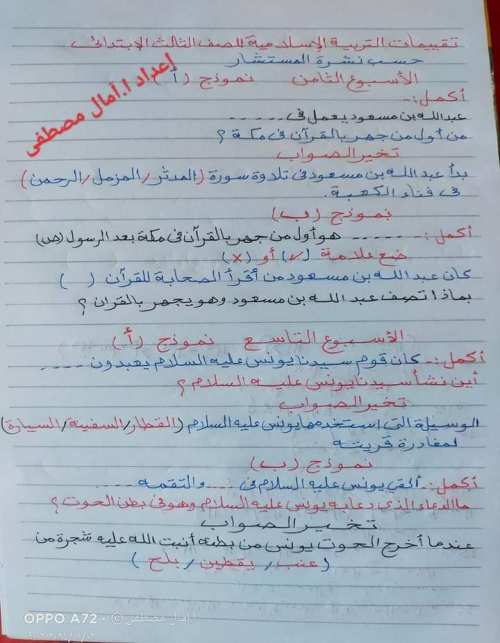 تقييمات التربية الإسلامية للصف الثالث الإبتدائى
حسب نشرة المستشار
إعداد أ.أمال مصطفى
الأسبوع الثامن نموذج (أ)
أكمل:-
عبدالله بن مسعود يعمل فى .....
من أول من جهر بالقرآن فى مكة ؟
تخير الصواب
بدأ عبدالله بن مسعود فى تلاوة سورة (المدثر/المزمل/الرحمن)
فى فناء الكعبة.
نموذج (ب)
أكمل:- ........ هو أول من جهر بالقرآن فى مكة بعد الرسول (ص)
ضع علامة (✓) أو (x)
كان عبد الله بن مسعود من أقرأ الصحابة للقرآن ( )
بماذا تصف عبد الله بن مسعود وهو يجهر بالقران ؟
الأسبوع التاسع نموذج (أ)
أكمل:- كان قوم سيدنا يونس عليه السلام يعبدون ....
أين نشأ سيدنا يونس عليه السلام ؟
تخير الصواب
الوسيلة التى استخدمها يونس عليه السلام (القطار/السفينة/السيارة)
لمغادرة قريته
نموذج (ب)
أكمل:- ألقي يونس عليه السلام فى .... والتقمه ....
ما الدعاء الذى دعا به يونس عليه السلام وهو فى بطن الحوت ؟
تخير الصواب
عندما أخرج الحوت يونس من بطنه أنبت الله عليه شجرة من
(عنب/يقطين/بلح)
OPPO A72 · © أمال مصطفى